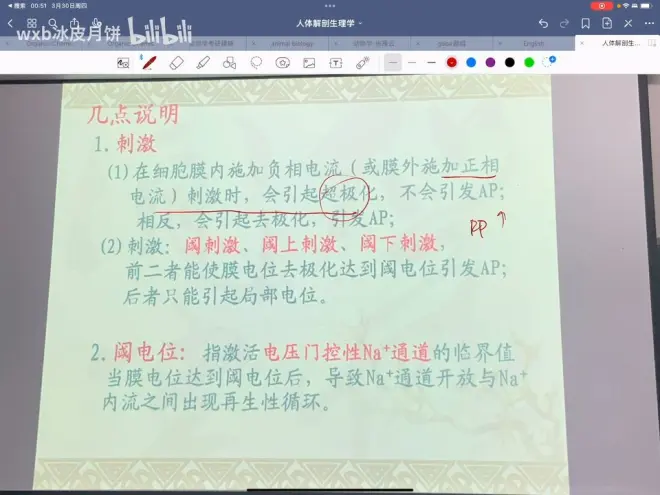 搜索 00:51 3月30日周四
人体解剖生理学
wxb冰皮月饼 bilibili
animal biology
English
人体解剖生...
几点说明
1. 刺激
(1) 在细胞膜内施加负相电流（或膜外施加正相
电流）刺激时，会引起超极化，不会引发AP；
相反，会引起去极化，引发AP；
RP ↑
(2) 刺激：阈刺激、阈上刺激、阈下刺激，
前二者能使膜电位去极化达到阈电位引发AP；
后者只能引起局部电位。
2. 阈电位：指激活电压门控性Na⁺通道的临界值
当膜电位达到阈电位后，导致Na⁺通道开放与Na⁺
内流之间出现再生性循环。